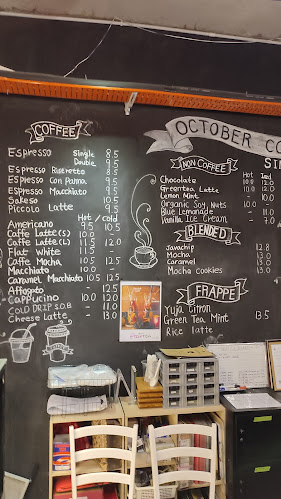 COFFEE
Espresso Single 8.5
Double 9.5
Espresso Ristretto 8.5
Espresso con Panna 9.5
Espresso Macchiato 9.5
Sakeso 10.5
Piccolo Latte 9.5
Hot / cold
Americano 9.5 10.5
Caffe Latte(S) 10.0
Caffe Latte(L) 11.5 12.0
Flat white 11.5
Caffe Mocha 10.5 12.5
Macchiato 10.0
Caramel Macchiato 10.5 12.5
Affogato 12.5
Cappuccino 10.0 12.0
COLD DRIP S.O.B - 11.0
Cheese Latte - 13.0
OCTOBER CO
SIN
NON COFFEE
Hot Iced
Chocolate 10.8 12.0
Greentea Latte 10.0
Lemon Mint 10.0
Organic Soy Nuts 10.0
Blue Lemonade - 11.0
Vanilla Ice Cream - 7.0
BLENDED
Javachip 12.8
Mocha 13.3
Caramel 13.3
Mocha cookies 13.3
FRAPPE
Yuja Citron
Green Tea Mint 13.5
Rice latte